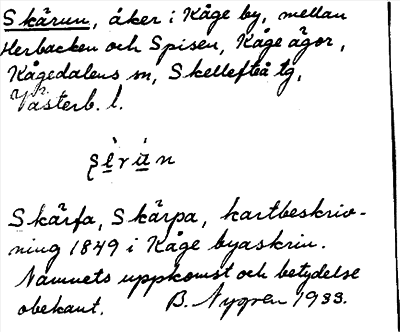 Skärun, åker i Kåge by, mellan
Herbacken och Spisen, Kåge ägor,
Kågedalens sn, Skellefteå tg,
Västerb. l.
Skärfa, Skärpa, kartbeskriv-
ning 1849 i Kåge byaskrin.
Namnets uppkomst och betydelse
obekant. B. Nygren 1933.